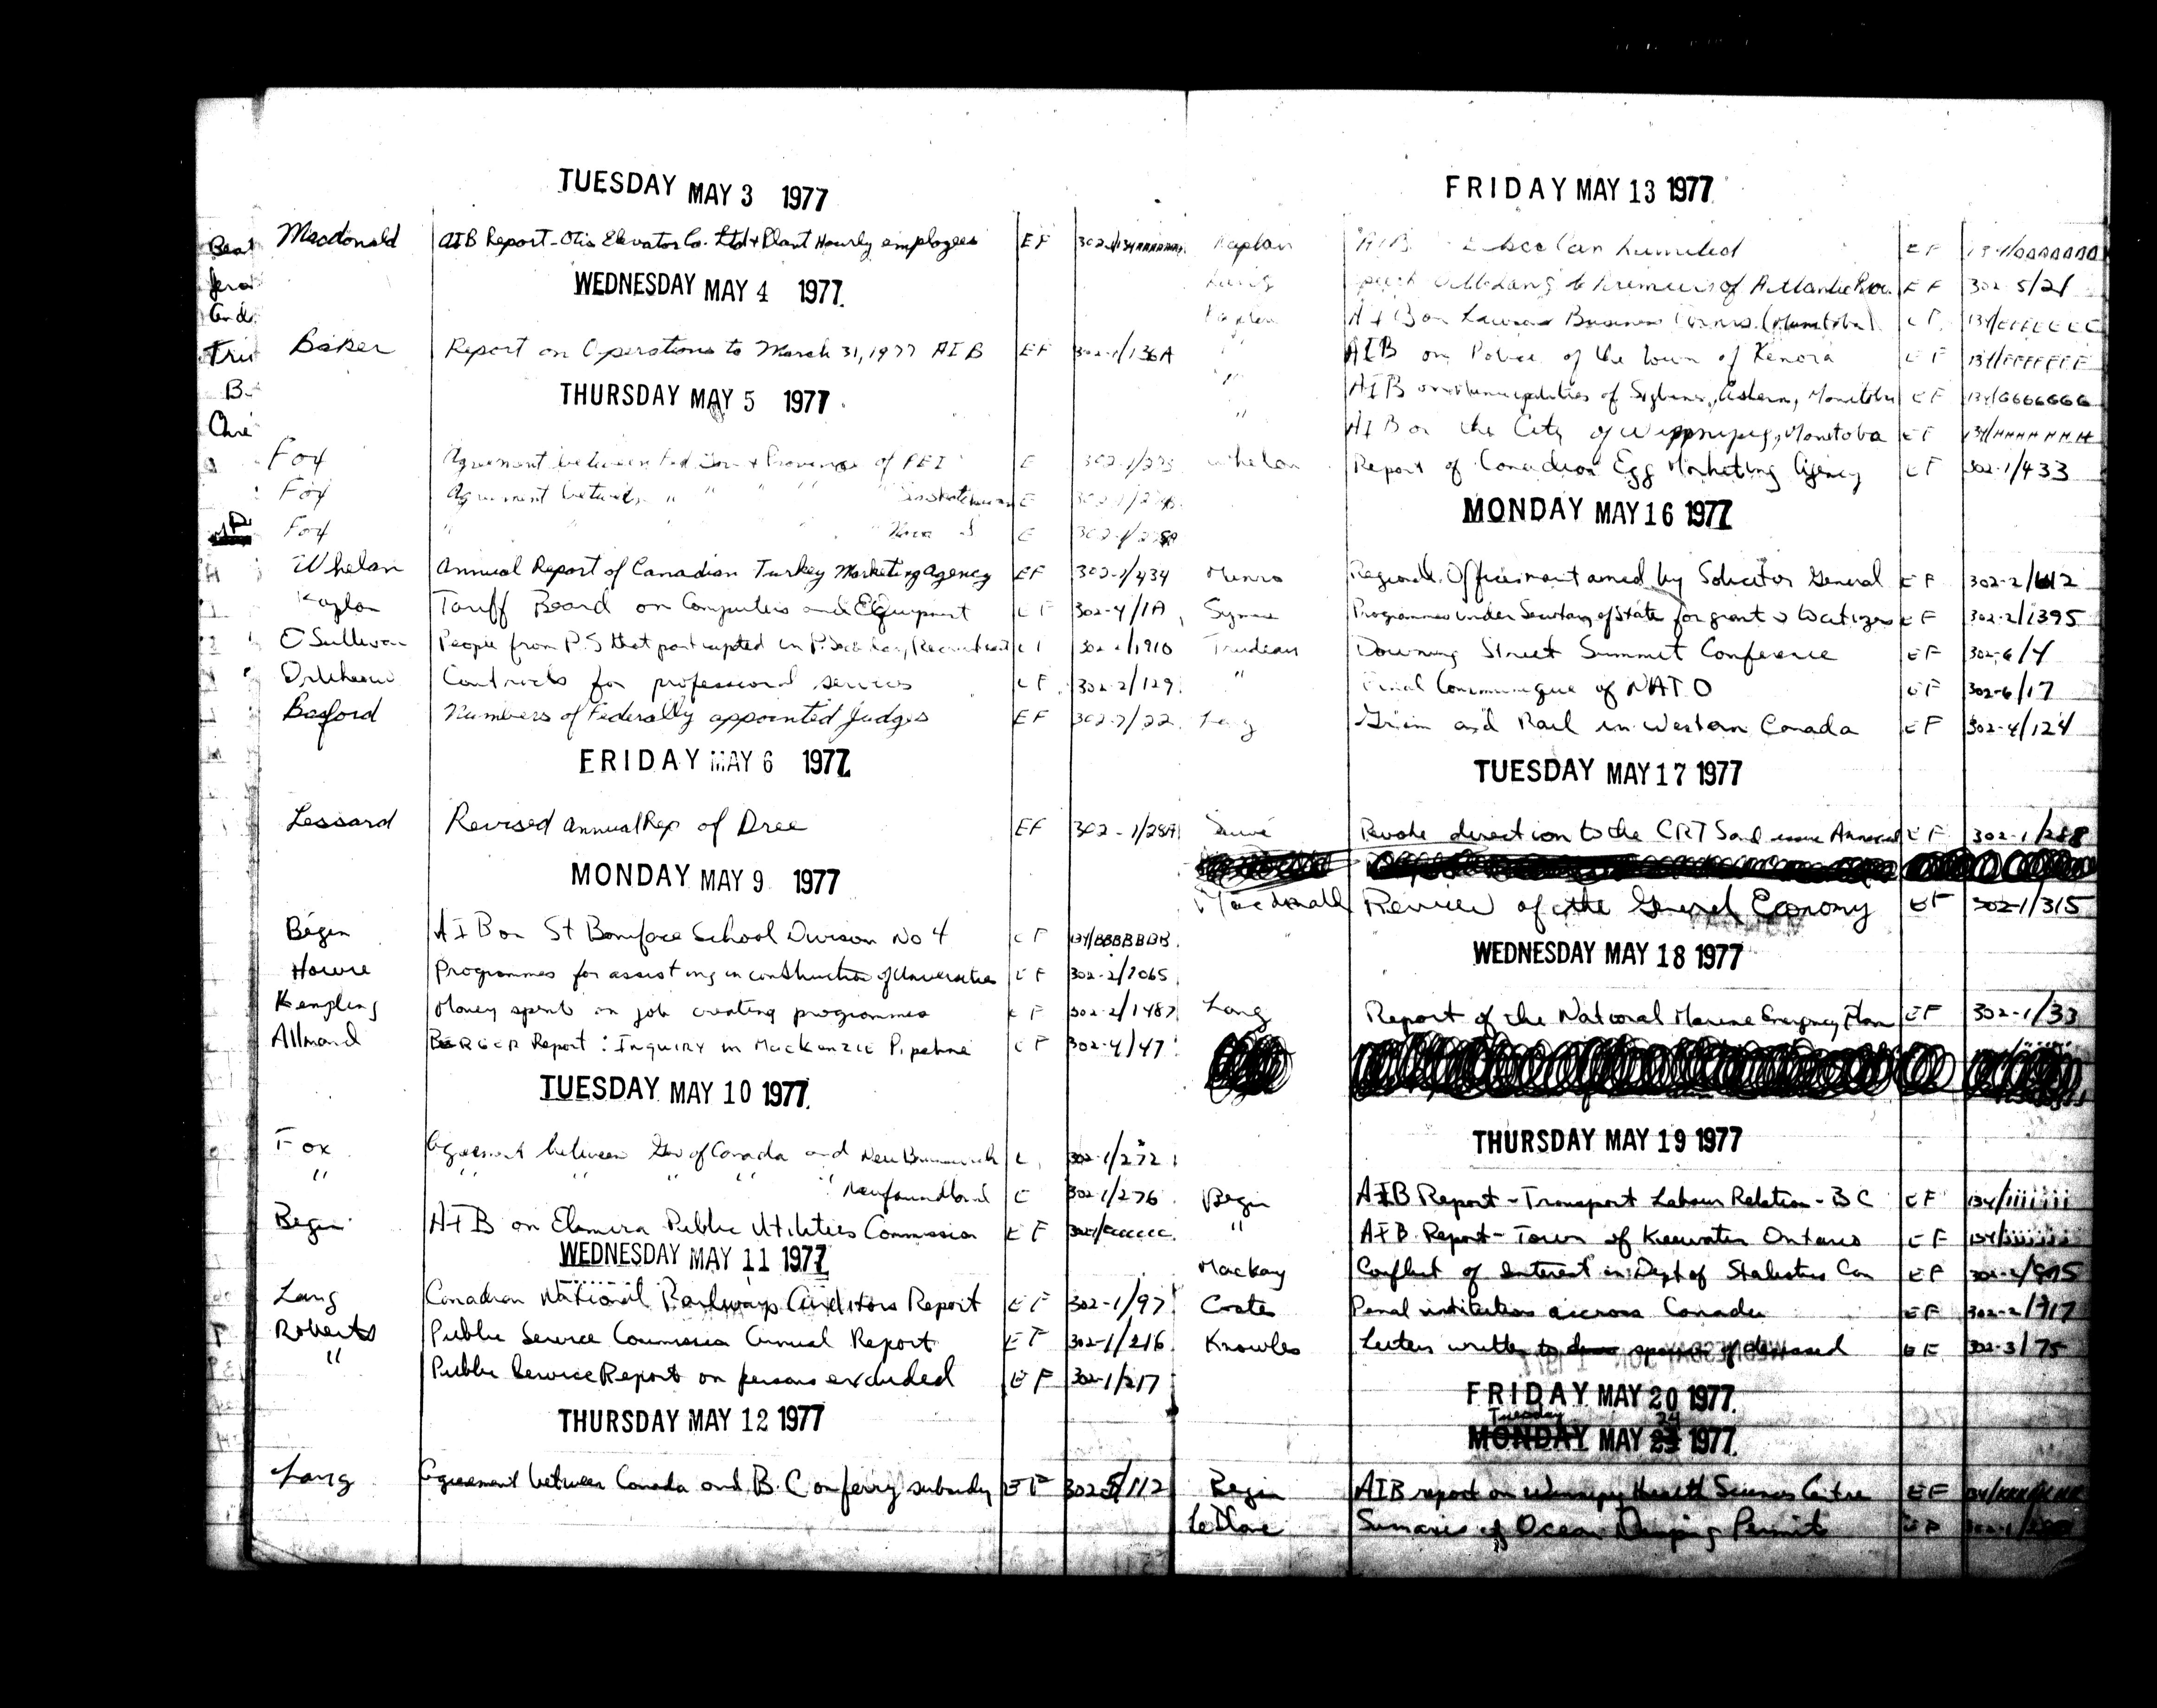 TUESDAY MAY 3 1977
Macdonald AIB Report - Otis Elevator Co. Ltd + Plant Hourly employees EF
WEDNESDAY MAY 4 1977
Baker Report on Operations to March 31, 1977 AIB EF 302-1/136A
THURSDAY MAY 5 1977
Fox Agreement between of PEI E
Fox Agreement between " " " " Saskatchewan E
Fox " " " Nova S E
Whelan Annual Report of Canadian Turkey Marketing Agency EF 302-1/434
Kaplan Tariff Board on Computers and Equipment EF 302-4/1A
O'Sullivan People from P.S that participated in EF 1910
Contracts for professional services EF 302-2/129
Basford Numbers of Federally appointed Judges EF 302-7/22
FRIDAY MAY 6 1977
Lessard Revised Annual Rep of Dree EF 302-1/28A
MONDAY MAY 9 1977
Bégin AIB on St Boniface School Division No 4 EF 134/BBBBBBB
Howie Programmes for assisting in construction of Universities EF 302-2/2065
Kempling Money spent on job creating programmes EF 302-2/1487
Allmand BERGER Report: INQUIRY in MacKenzie Pipeline EF 302-4/47
TUESDAY MAY 10 1977
Fox Agreement between Gov of Canada and New Brunswick E 302-1/272
" " " " " Newfoundland E 302-1/276
Begin AIB on Elmira Public Utilities Commission EF
WEDNESDAY MAY 11 1977
Lang Canadian National Railways Auditors Report EF 302-1/97
Roberts Public Service Commission Annual Report EF 302-1/216
" Public Service Report on persons excluded EF 302-1/217
THURSDAY MAY 12 1977
Lang Agreement between Canada and B.C on ferry subsidy EF 302-5/112
FRIDAY MAY 13 1977
Kaplan AIB Limited EF
Lang Lang to Premiers of Atlantic Prov. EF 302-5/21
Kaplan AIB on Business Forms (Manitoba) EF
" AIB on Police of the town of Kenora EF 134/FFFFFFF
" AIB on Municipalities of Manitoba EF 134/GGGGGGG
" AIB on the City of Winnipeg, Manitoba EF 134/HHHHHHH
Whelan Report of Canadian Egg Marketing Agency EF 302-1/433
MONDAY MAY 16 1977
Munro Regional Offices maintained by Solicitor General EF 302-2/612
Symes Programmes under Secretary of State for grants to citizens EF 302-2/1395
Trudeau Downing Street Summit Conference EF 302-6/4
" Final Communique of NATO EF 302-6/17
Lang Grain and Rail in Western Canada EF 302-4/124
TUESDAY MAY 17 1977
Sauvé Revoke direction to the CRTC and issue EF 302-1/288
Macdonald Review of the General Economy EF 302-1/315
WEDNESDAY MAY 18 1977
Lang Report of the National Marine Emergency Plan EF 302-1/33
THURSDAY MAY 19 1977
Begin AIB Report - Transport Labour Relation - BC EF 134/iiiiiii
" AIB Report - Town of Keewatin Ontario EF 134/jjjjjjj
Mackay Conflict of Interest in Dept of Statistics Can EF
Coates Penal institutions across Canada EF 302-2/917
Knowles Letters written to spouses of deceased EF 302-3/75
FRIDAY MAY 20 1977
Tuesday 24
MONDAY MAY 23 1977
Begin AIB report on Winnipeg Health Sciences Centre EF
LeBlanc Summaries of Ocean Dumping Permits EF